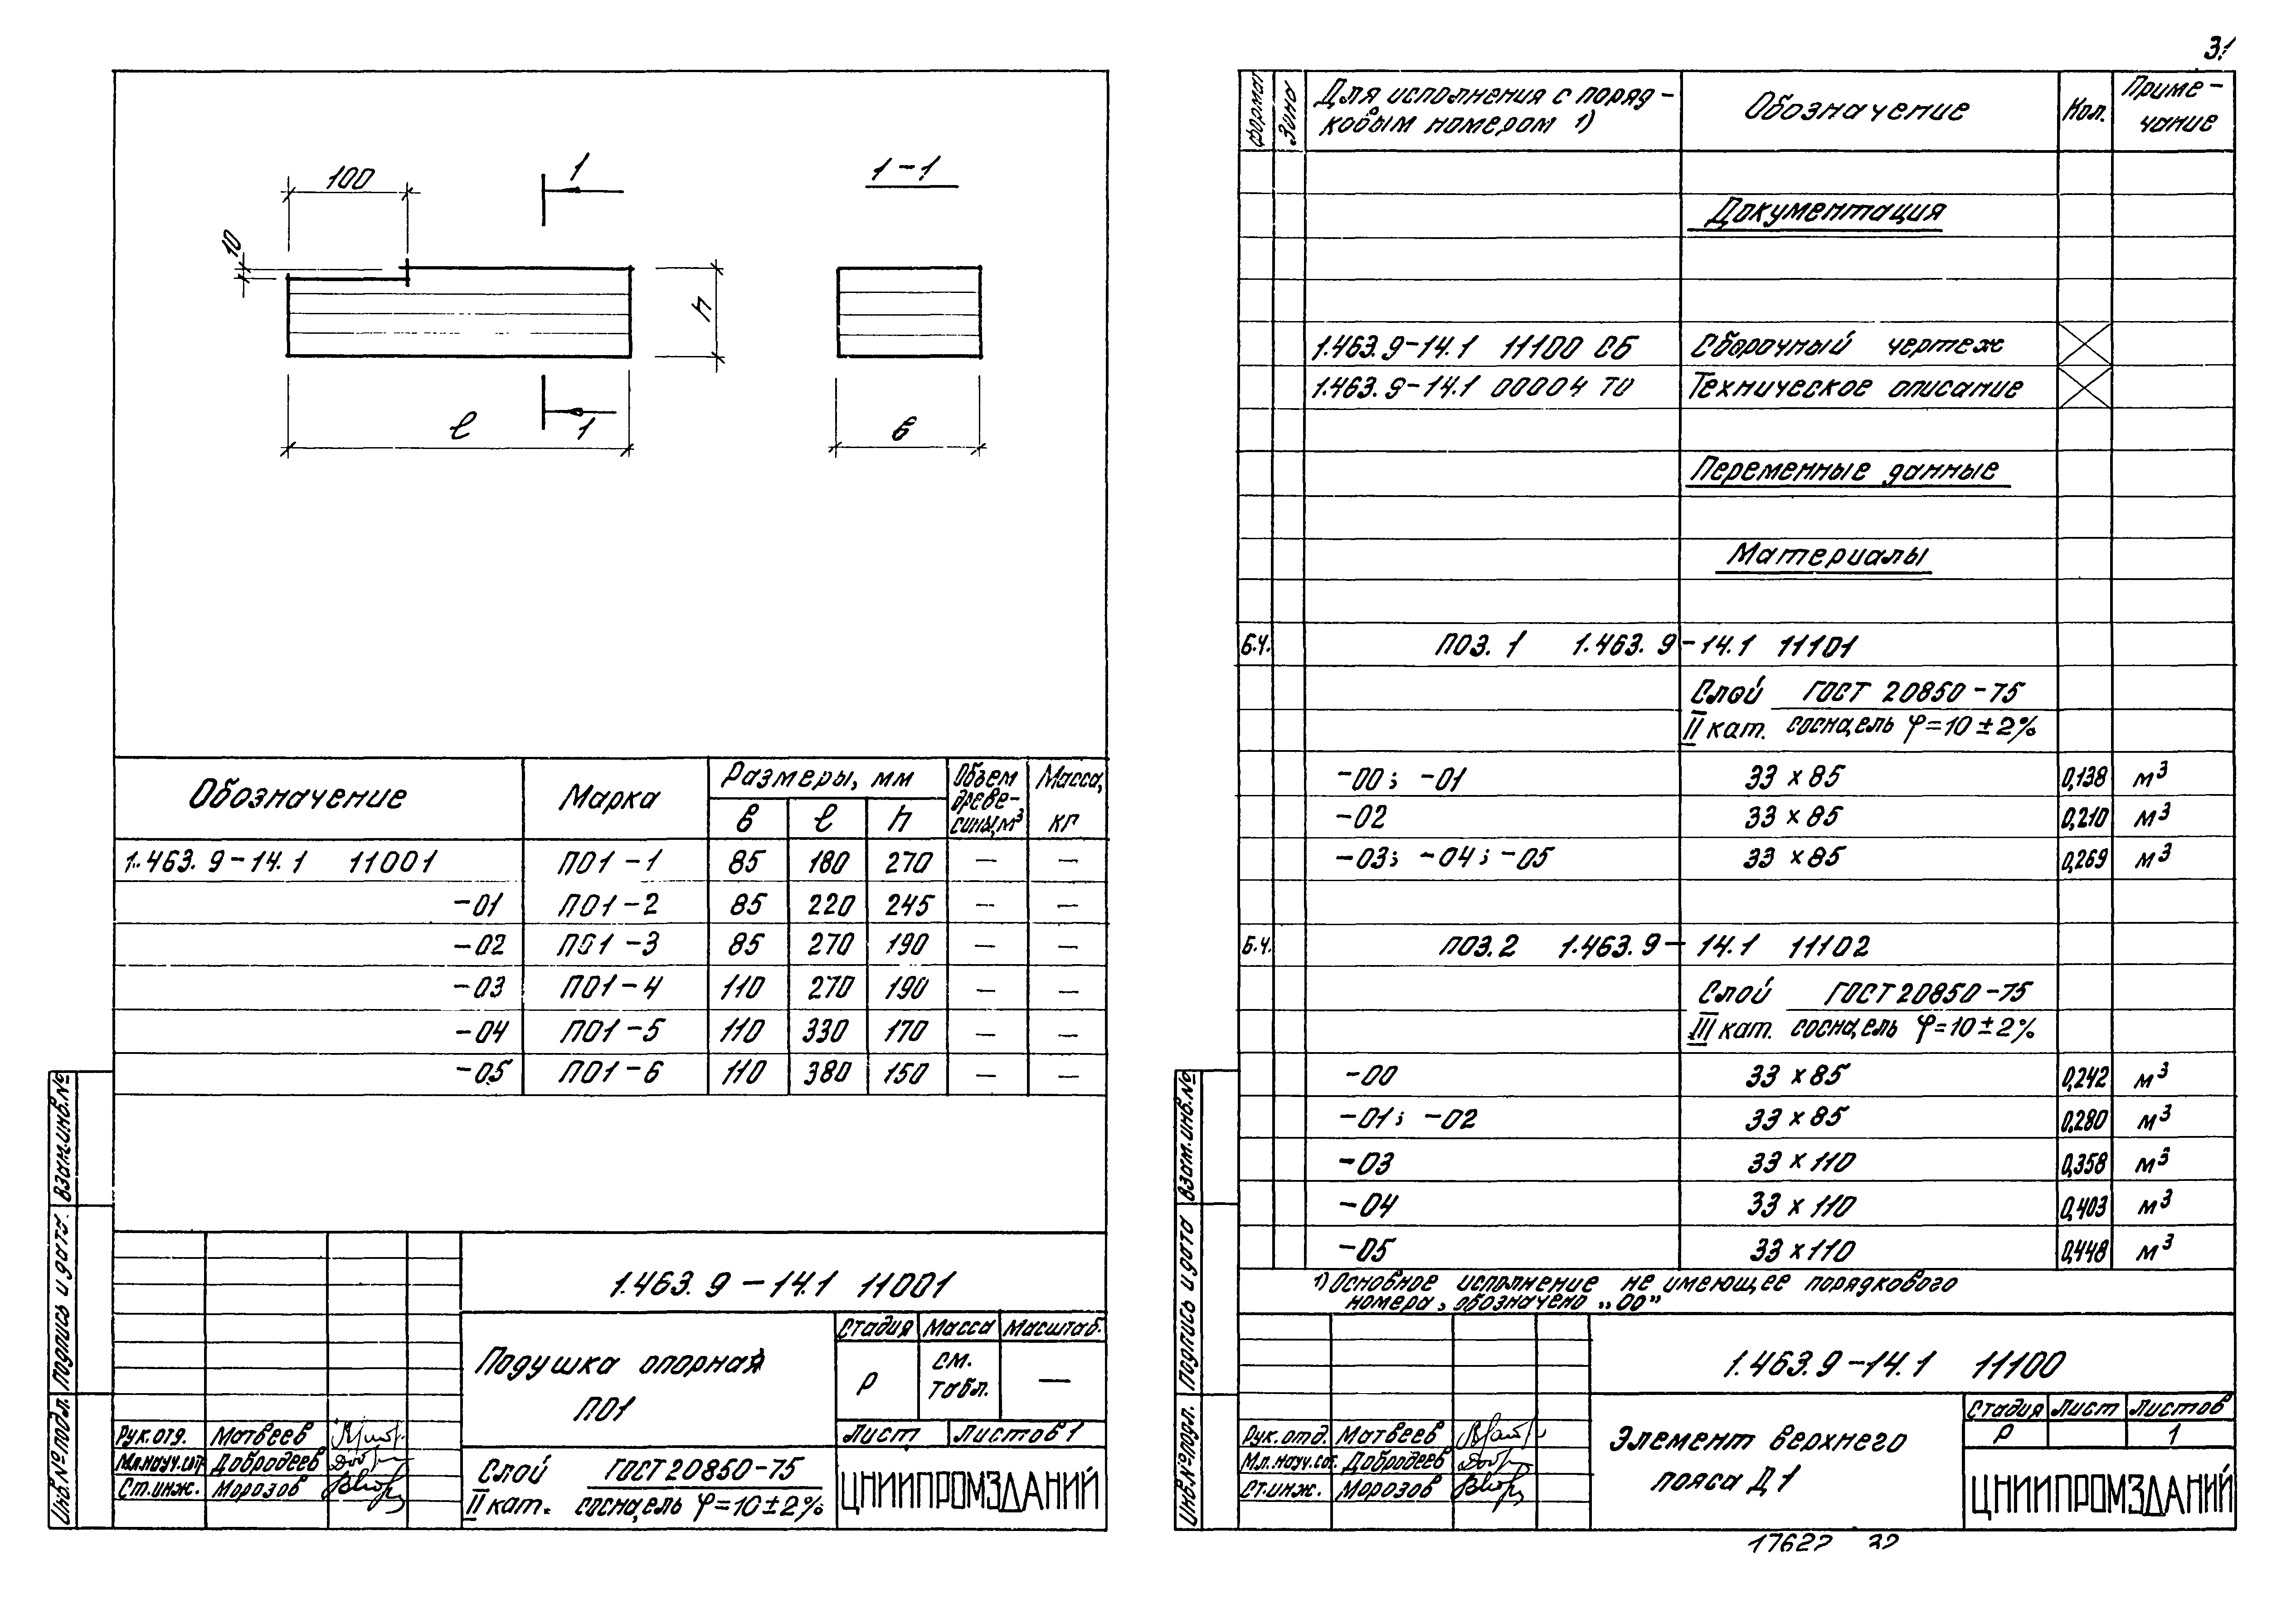 31
100
1
1-1
10
h
1
ℓ
в
Обозначение Марка Размеры, мм Объем древе-сины, м³ Масса, кг
в ℓ h
1.463.9-14.1 11001 ПО1-1 85 180 270 — —
-01 ПО1-2 85 220 245 — —
-02 ПО1-3 85 270 190 — —
-03 ПО1-4 110 270 190 — —
-04 ПО1-5 110 330 170 — —
-05 ПО1-6 110 380 150 — —
1.463.9-14.1 11001
Подушка опорная
ПО1
Стадия Масса Масштаб.
Р см. табл. —
Лист Листов 1
Рук.отд. Матвеев
Мл.науч.сот. Добродеев
Ст.инж. Морозов
Слой ГОСТ 20850-75
II кат. сосна,ель φ=10±2%
ЦНИИПРОМЗДАНИЙ
Инв.№ подл. Подпись и дата. Взам.инв.№
Формат Зона Для исполнения с поряд-ковым номером 1) Обозначение Кол. Приме-чание
Документация
1.463.9-14.1 11100 СБ Сборочный чертеж
1.463.9-14.1 00004 ТО Техническое описание
Переменные данные
Материалы
Б.Ч. поз. 1 1.463.9-14.1 11101
Слой ГОСТ 20850-75
II кат. сосна,ель φ=10±2%
-00; -01 33 х 85 0,138 м³
-02 33 х 85 0,210 м³
-03; -04; -05 33 х 85 0,269 м³
Б.Ч. поз. 2 1.463.9-14.1 11102
Слой ГОСТ 20850-75
III кат. сосна,ель φ=10±2%
-00 33 х 85 0,242 м³
-01; -02 33 х 85 0,280 м³
-03 33 х 110 0,358 м³
-04 33 х 110 0,403 м³
-05 33 х 110 0,448 м³
1) Основное исполнение не имеющее порядкового
номера, обозначено „00"
1.463.9-14.1 11100
Элемент верхнего
пояса Д1
Стадия Лист Листов
Р 1
Рук.отд. Матвеев
Мл.науч.сот. Добродеев
Ст.инж. Морозов
ЦНИИПРОМЗДАНИЙ
Инв.№ подл. Подпись и дата Взам.инв.№
17622 32